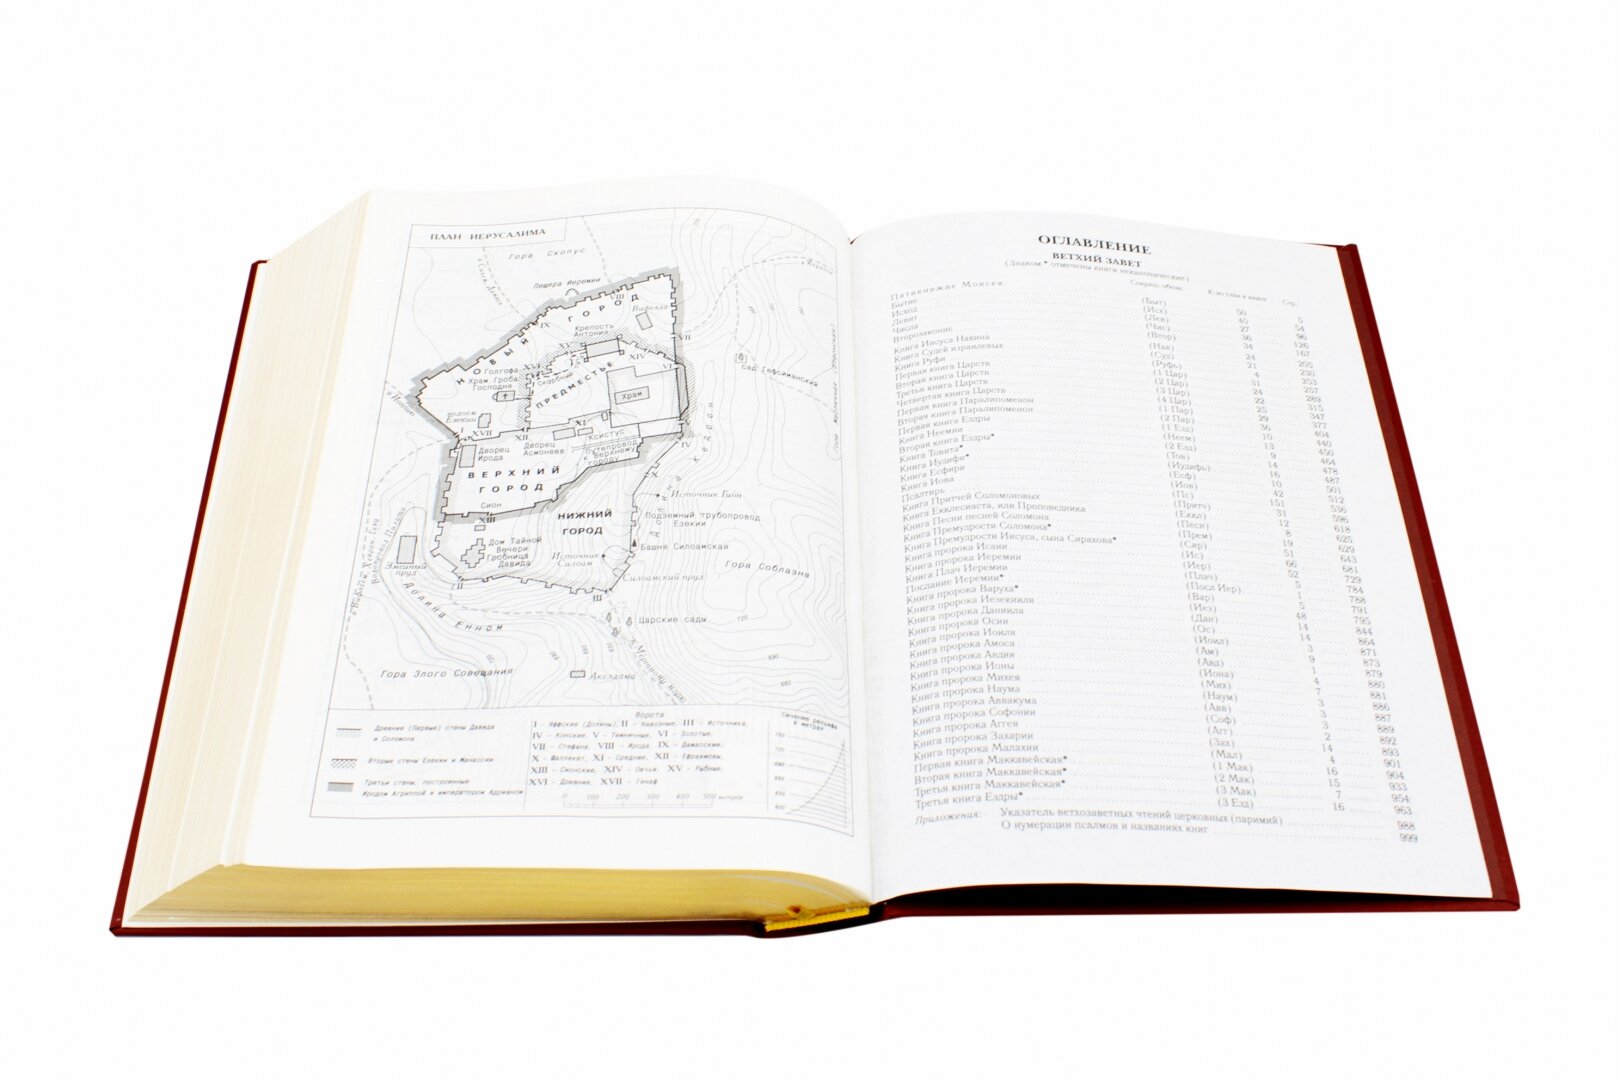 ПЛАН ИЕРУСАЛИМА
Гора Скопус
Пещера Иеремии
VIII
Вифезда
IX
НОВЫЙ ГОРОД
Крепость
Антония
XV
XIV
VII
VI
XVI
Голгофа
Храм Гроба
Господня
Скорбный
ПРЕДМЕСТЬЕ
Храм
сад Гефсиманский
водоем
Езекии
I
XVII
XII
XI
Ксистус
Дворец
Ирода
Дворец
Асмонеев
Путепровод
к Верхнему
городу
IV
ВЕРХНИЙ
ГОРОД
X
Долина Кедрон
Источник Гион
Сион
XIII
НИЖНИЙ
ГОРОД
Подземный трубопровод
Езекии
Дом Тайной
Вечери
Гробница
Давида
Источник
Силоам
Башня Силоамская
Гора Соблазна
Змеиный
пруд
Силоамский пруд
II
III
Долина Енном
Царские сады
К Мертвому морю
Гора Злого Совещания
Акелдама
Древние (Первые) стены Давида
и Соломона
Вторые стены Езекии и Манассии
Третьи стены, построенные
Иродом Агриппой и императором Адрианом
Ворота
I - Яффские (Долины), II - Навозные, III - Источника,
IV - Конские, V - Темничные, VI - Золотые,
VII - Стефана, VIII - Ирода, IX - Дамасские,
X - Шаллекет, XI - Средние, XII - Ефраимовы,
XIII - Сионские, XIV - Овчьи, XV - Рыбные,
XVI - Древние, XVII - Генаф
0 100 200 300 400 500 метров
Сечение рельефа
в метрах
ОГЛАВЛЕНИЕ
ВЕТХИЙ ЗАВЕТ
(Знаком * отмечены книги неканонические)
Сокращ. обозн. К-во глав в книге Стр.
Пятикнижие Моисея:
Бытие (Быт) 50 5
Исход (Исх) 40 54
Левит (Лев) 27 96
Числа (Чис) 36 126
Второзаконие (Втор) 34 167
Книга Иисуса Навина (Нав) 24 205
Книга Судей израилевых (Суд) 21 230
Книга Руфи (Руфь) 4 253
Первая книга Царств (1 Цар) 31 257
Вторая книга Царств (2 Цар) 24 289
Третья книга Царств (3 Цар) 22 315
Четвертая книга Царств (4 Цар) 25 347
Первая книга Паралипоменон (1 Пар) 29 377
Вторая книга Паралипоменон (2 Пар) 36 404
Первая книга Ездры (1 Езд) 10 440
Книга Неемии (Неем) 13 450
Вторая книга Ездры* (2 Езд) 9 464
Книга Товита* (Тов) 14 478
Книга Иудифи* (Иудифь) 16 487
Книга Есфири (Есф) 10 501
Книга Иова (Иов) 42 512
Псалтирь (Пс) 151 536
Книга Притчей Соломоновых (Притч) 31 596
Книга Екклесиаста, или Проповедника (Еккл) 12 618
Книга Песни песней Соломона (Песн) 8 625
Книга Премудрости Соломона* (Прем) 19 629
Книга Премудрости Иисуса, сына Сирахова* (Сир) 51 643
Книга пророка Исаии (Ис) 66 681
Книга пророка Иеремии (Иер) 52 729
Книга Плач Иеремии (Плач) 5 784
Послание Иеремии* (Посл Иер) 1 788
Книга пророка Варуха* (Вар) 5 791
Книга пророка Иезекииля (Иез) 48 795
Книга пророка Даниила (Дан) 14 844
Книга пророка Осии (Ос) 14 864
Книга пророка Иоиля (Иоил) 3 871
Книга пророка Амоса (Ам) 9 873
Книга пророка Авдия (Авд) 1 879
Книга пророка Ионы (Иона) 4 880
Книга пророка Михея (Мих) 7 881
Книга пророка Наума (Наум) 3 886
Книга пророка Аввакума (Авв) 3 887
Книга пророка Софонии (Соф) 3 889
Книга пророка Аггея (Агг) 2 892
Книга пророка Захарии (Зах) 14 893
Книга пророка Малахии (Мал) 4 901
Первая книга Маккавейская* (1 Мак) 16 904
Вторая книга Маккавейская* (2 Мак) 15 933
Третья книга Маккавейская* (3 Мак) 7 954
Третья книга Ездры* (3 Езд) 16 963
Приложения: Указатель ветхозаветных чтений церковных (паримий) 988
О нумерации псалмов и названиях книг 999